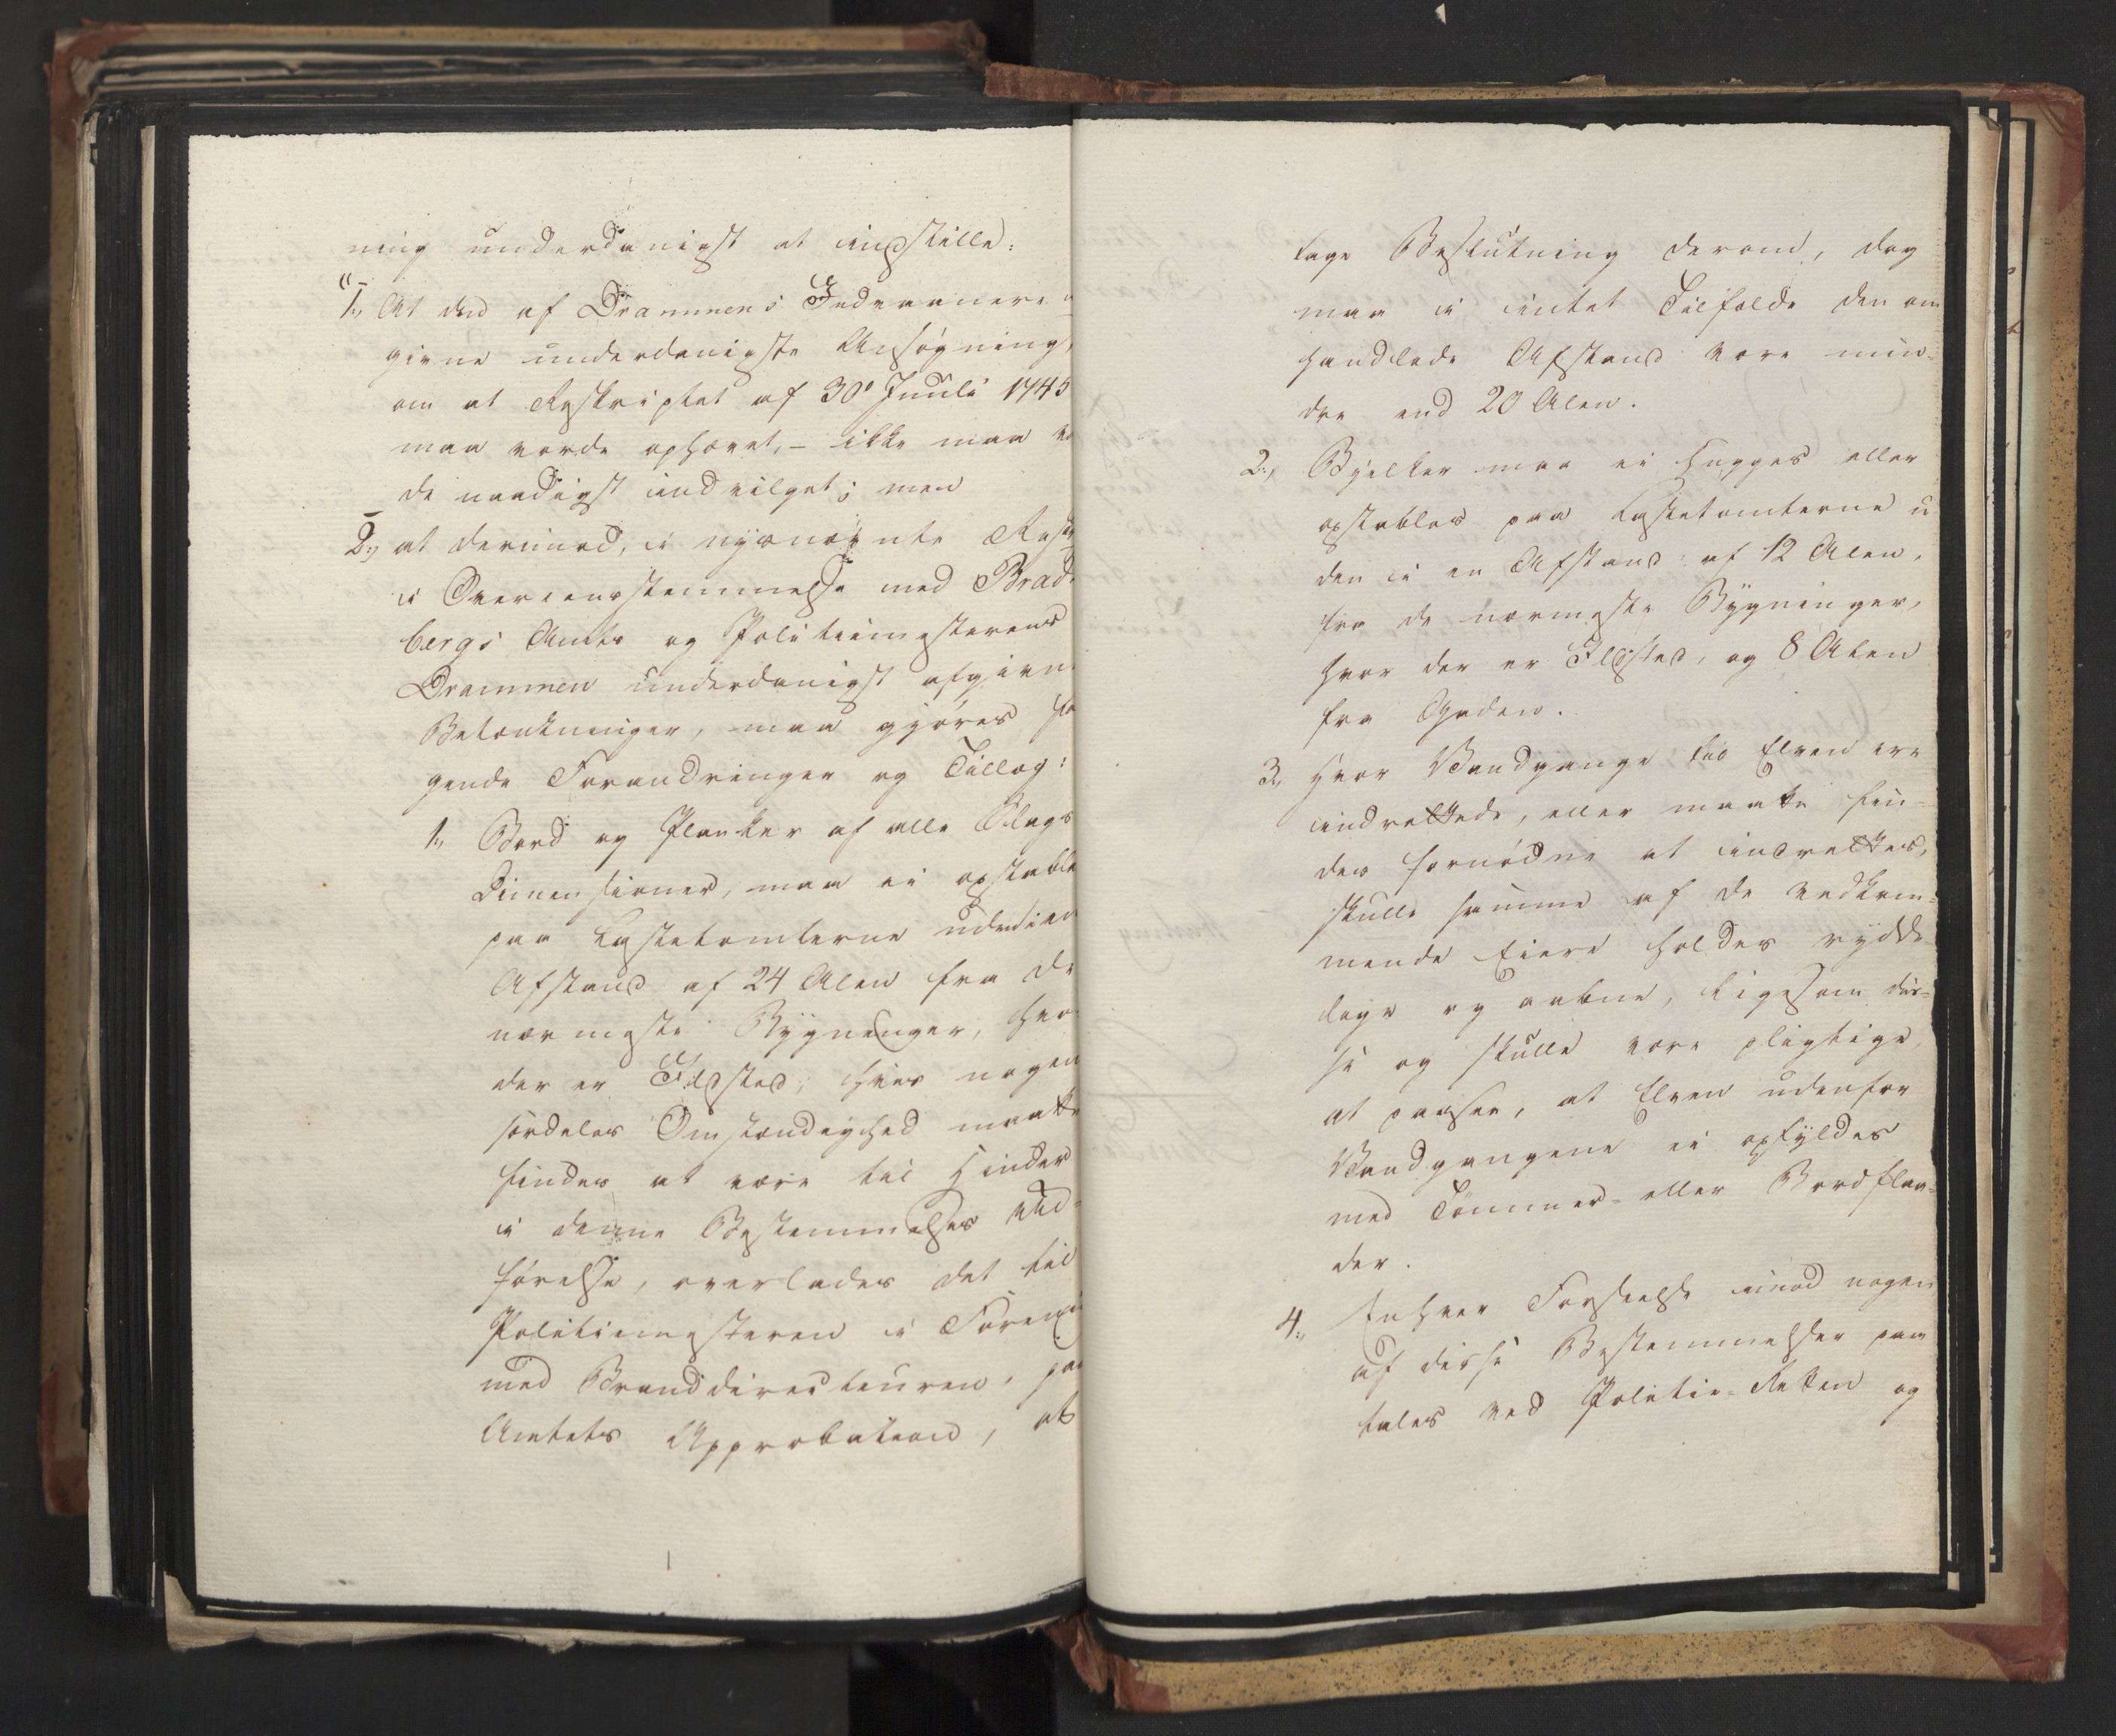 ning underdanigst at indstille:
"1., At den af Drammens Indvaanere
givne underdanigste Ansøgning,
om at Reskriptet af 30' Juuli 1745
maa vorde ophævet, - ikke maa vor
de naadigst indvilget; men
2., at derimod, i nysnævnte Reskr
i Overeensstemmelse med Brads
bergs Amts og Politiemesterens
Drammen underdanigst afgivne
Betænkninger, maa gjøres føl
gende Forandringer og Tillæg:
1., Bord og Planker af alle Slags
Dimensioner, maa ei opstables
paa Lastetomterne uden i en
Afstand af 24 Alen fra de
nærmeste Bygninger, hvor
der er Ildsted; hvis nogen
særdeles Omstændighed maatte
findes at være til Hinder
i denne Bestemmelses Ud-
førelse, overlades det til
Politiemesteren i Forening
med Branddirecteuren, paa
Amtets Approbation, at
tage Beslutning derom, dog
maa i intet Tilfælde den om
handlede Afstand være min-
dre end 20 Alen.
2., Bjelker maa ei hugges eller
opstables paa Lastetomterne u
den i en Afstand af 12 Alen,
fra de nærmeste Bygninger,
hvor der er Ildsted, og 8 Alen
fra Gaden.
3., Hvor Vandgange til Elven ere
indrettede, eller maatte fin-
des fornødne at indrettes,
skulle samme af de vedkom-
mende Eiere holdes rydde-
lige og aabne, ligesom dis-
se og skulle være pligtige
at paasee, at Elven udenfor
Vandgangene ei opfyldes
med Tømmer- eller Bordflaa-
der.
4., Enhver Forseelse imod nogen
af disse Bestemmelser paa
tales ved Politie-Retten og